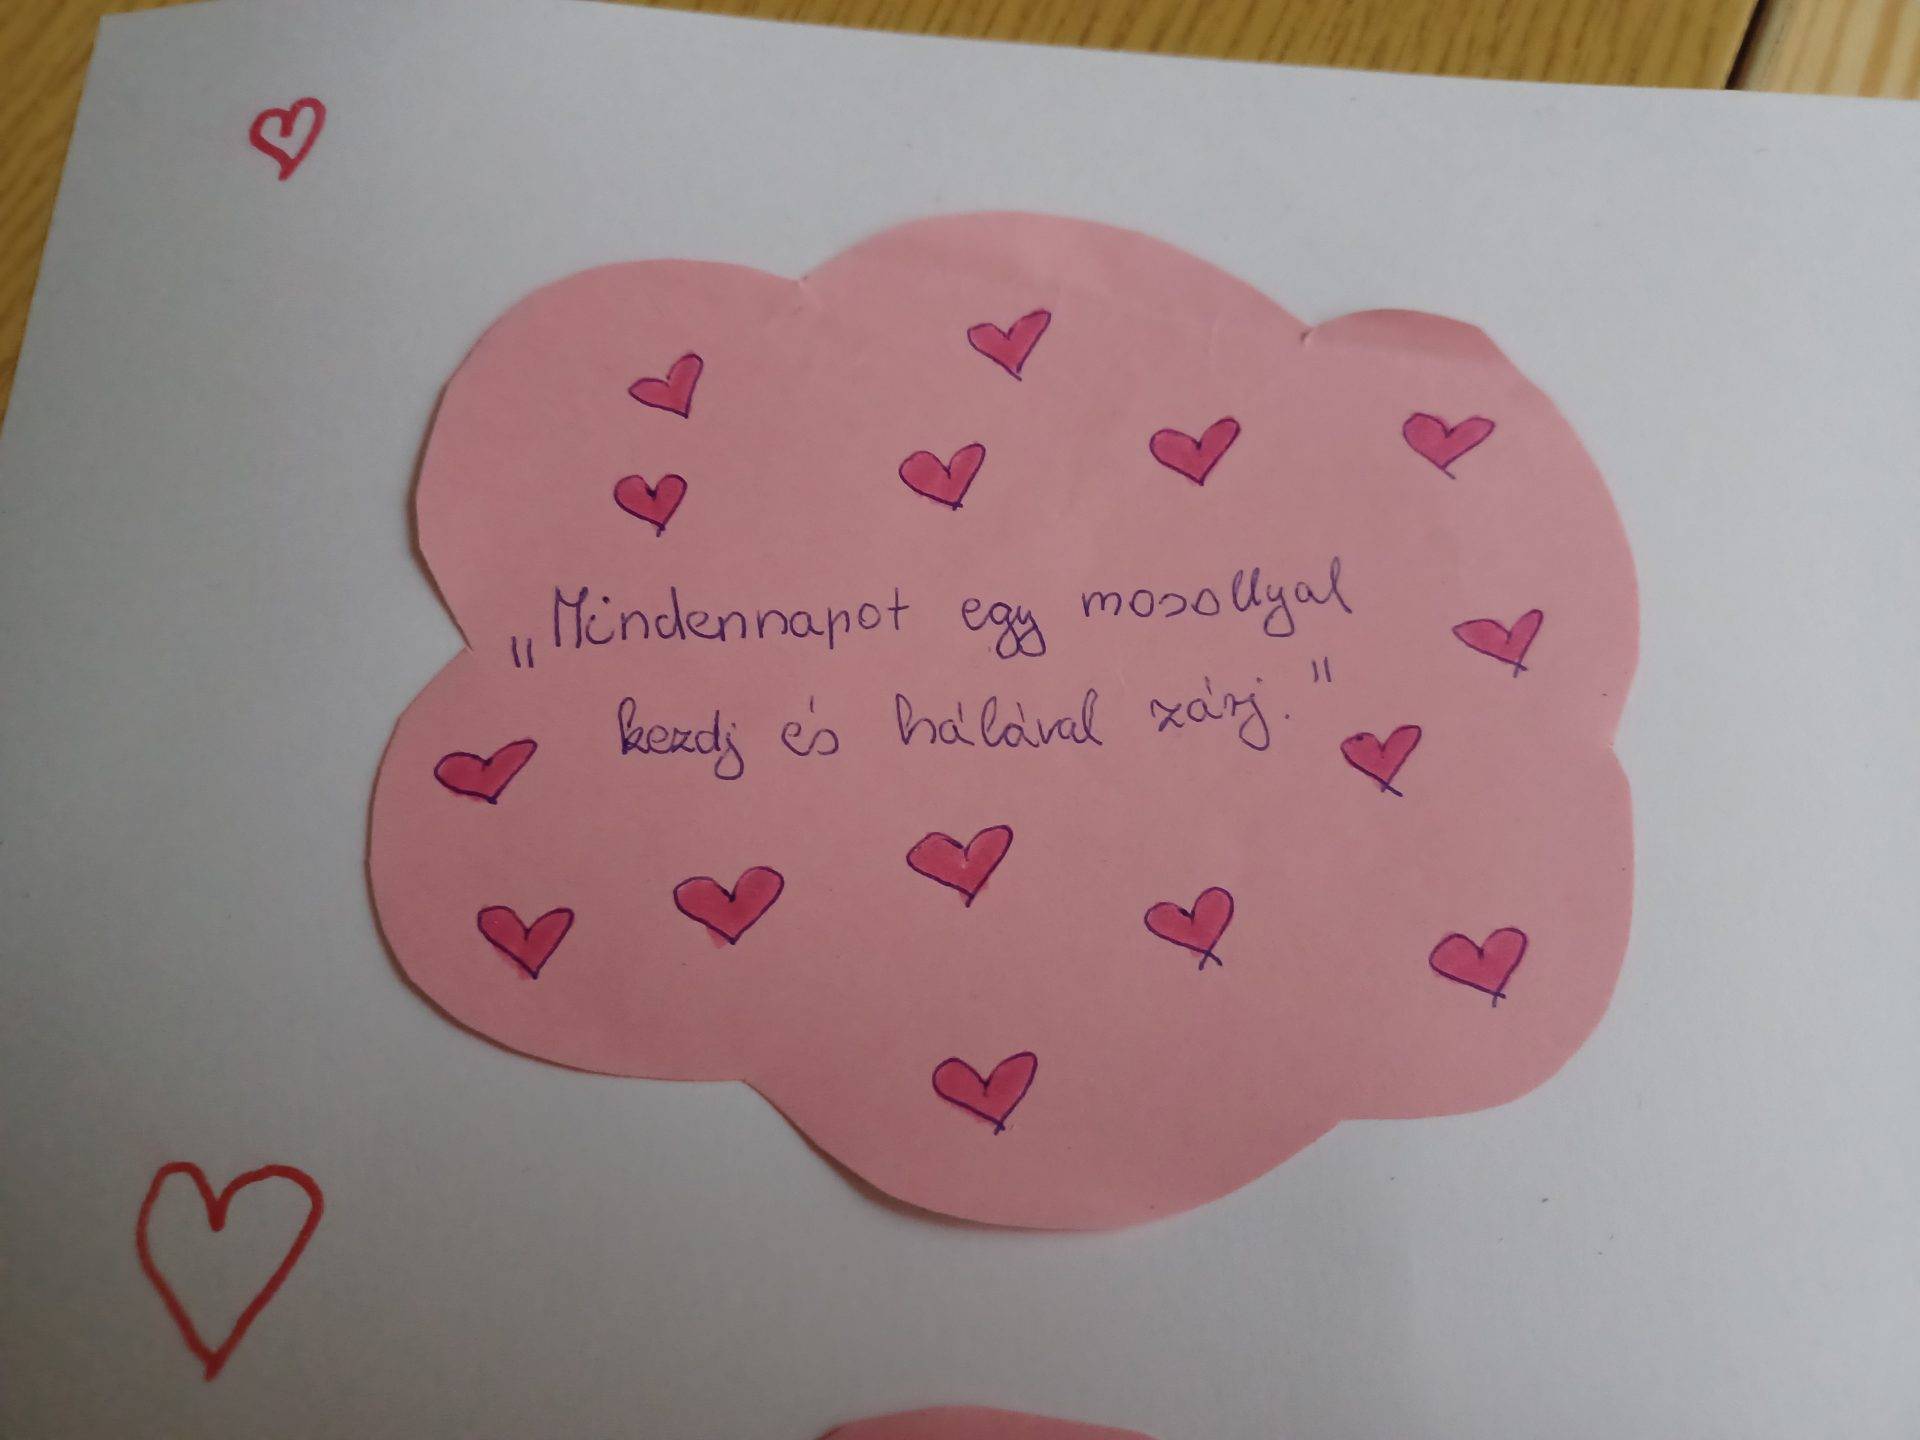 „Mindennapot egy mosollyal
kezdj és hálával zárj."